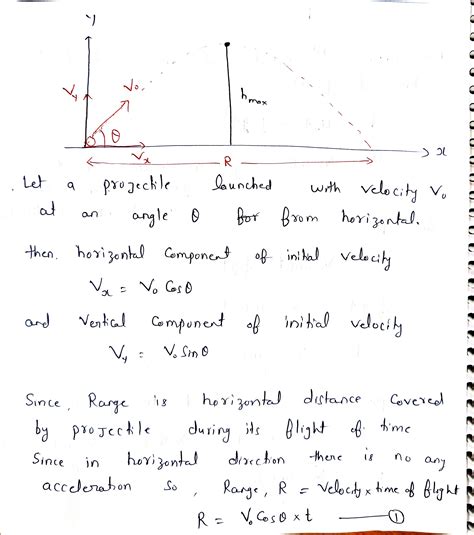 y
Vy
V₀
θ
Vx
hmax
x
R
Let a projectile launched with velocity V₀
at an angle θ from horizontal.
then, horizontal component of initial velocity
Vx = V₀ Cosθ
and Vertical Component of initial velocity
Vy = V₀ Sinθ
Since, Range is horizontal distance Covered
by projectile during its flight of time
Since in horizontal direction there is no any
acceleration So, Range, R = Velocity × time of flight
R = V₀Cosθ × t —— ①